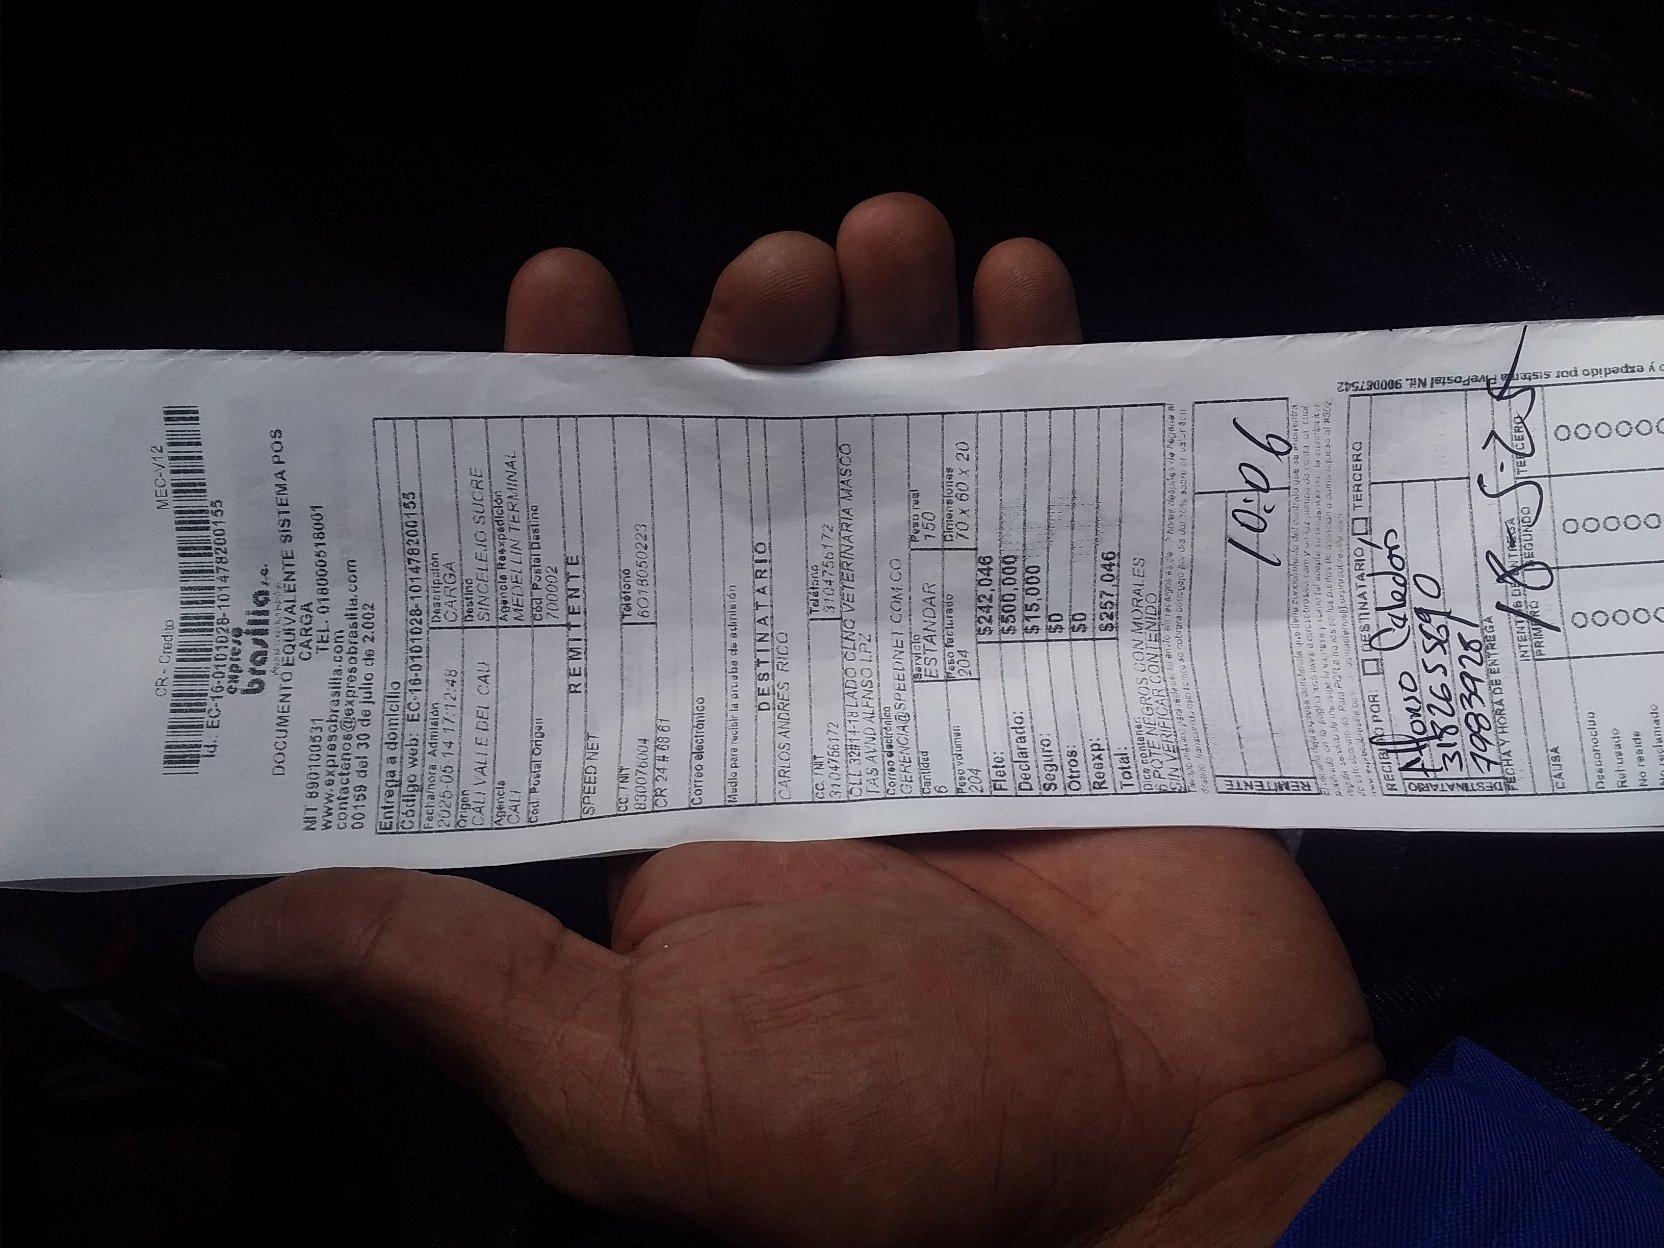 CR - Credito MEC-V12
Id.: EC-16-0101028-10147820015​5
expreso
brasilia s.a.
DOCUMENTO EQUIVALENTE SISTEMA POS
CARGA
NIT 890100531 TEL. 018000518001
www.expresobrasilia.com
contactenos@expresobrasilia.com
00159 del 30 de julio de 2.002
Entrega a domicilio
Código web: EC-16-0101028-101478200155
Fecha/hora Admisión Descripción
2025-05-14 17:12:48 CARGA
Origen Destino
CALI VALLE DEL CAU SINCELEJO SUCRE
Agencia Agencia Reexpedición
CALI MEDELLIN TERMINAL
Cód. Postal Origen Cód. Postal Destino
700002
REMITENTE
SPEED NET
CC / NIT Teléfono
6018050223
CR 24 # 68 61
Correo electrónico
Medio para recibir la prueba de admisión
DESTINATARIO
CARLOS ANDRES RICO
CC / NIT Teléfono
3104756172 3104756172
CLL 32#14-18 LADO CLINC VETERINARIA MASCO
TAS AVND ALFNSO LPZ
Correo electrónico
GERENCIA@SPEEDNET.COM.CO
Cantidad Servicio Peso real
6 ESTANDAR 150
Peso volumen Peso facturado Dimensiones
204 204 70 x 60 x 20
Flete: $242,046
Declarado: $500,000
Seguro: $15,000
Otros: $0
Reexp: $0
Total: $257,046
Dice contener:
6 POTE NEGROS CON MORALES
SIN VERIFICAR CONTENIDO
REMITENTE
10:06
RECIBIDO POR DESTINATARIO TERCERO
DESTINATARIO
Alfono Caledon
3182655890
79839281
FECHA Y HORA DE ENTREGA
18-5-25
INTENTOS DE ENTREGA
PRIMERO SEGUNDO TERCERO
CAUSA
Desconocido
Rehusado
No reside
No reclamado
o y expedido por sistema FivePostal Nit. 900087542